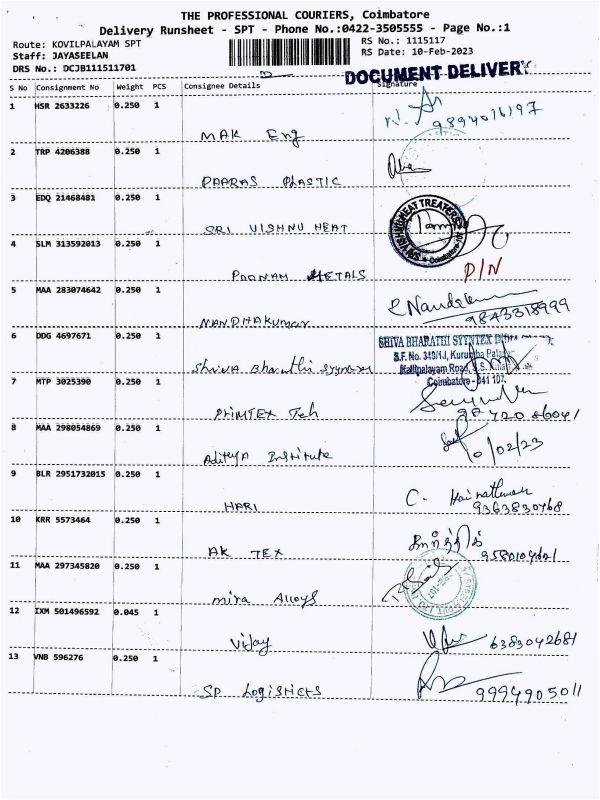 THE PROFESSIONAL COURIERS, Coimbatore
Delivery Runsheet - SPT - Phone No.:0422-3505555 - Page No.:1
Route: KOVILPALAYAM SPT
Staff: JAYASEELAN
DRS No.: DCJB111511701
RS No.: 1115117
RS Date: 10-Feb-2023
DOCUMENT DELIVERY
S No Consignment No Weight PCS Consignee Details Signature
1 HSR 2633226 0.250 1
MAK Eng 9894016197
2 TRP 4206388 0.250 1
PAARAS PLASTIC
3 EDQ 21468481 0.250 1
SRI VISHNU HEAT
SRI VISHNU HEAT TREATERS Coimbatore-107
4 SLM 313592013 0.250 1
POONAM METALS D/N
5 MAA 283074642 0.250 1
NANDHAKUMAR 9843318999
6 DDG 4697671 0.250 1
SHIVA BHARATHI SYYNTEX
S.F. No. 349/1J,
Kalipalayam Road, S.S.
Coimbatore - 641 107.
Shiva Bharathi Syyntex
7 MTP 3025390 0.250 1
PRIMTEX Teh
8 MAA 298054869 0.250 1
10/02/23
Aditya Institute
9 BLR 2951732015 0.250 1
HARI 9363830768
10 KRR 5573464 0.250 1
AK TEX
11 MAA 297345820 0.250 1
Mira Alloys
12 IXM 501496592 0.045 1
Vijay 6383042681
13 VNB 596276 0.250 1
SP Logisticts 9994905011